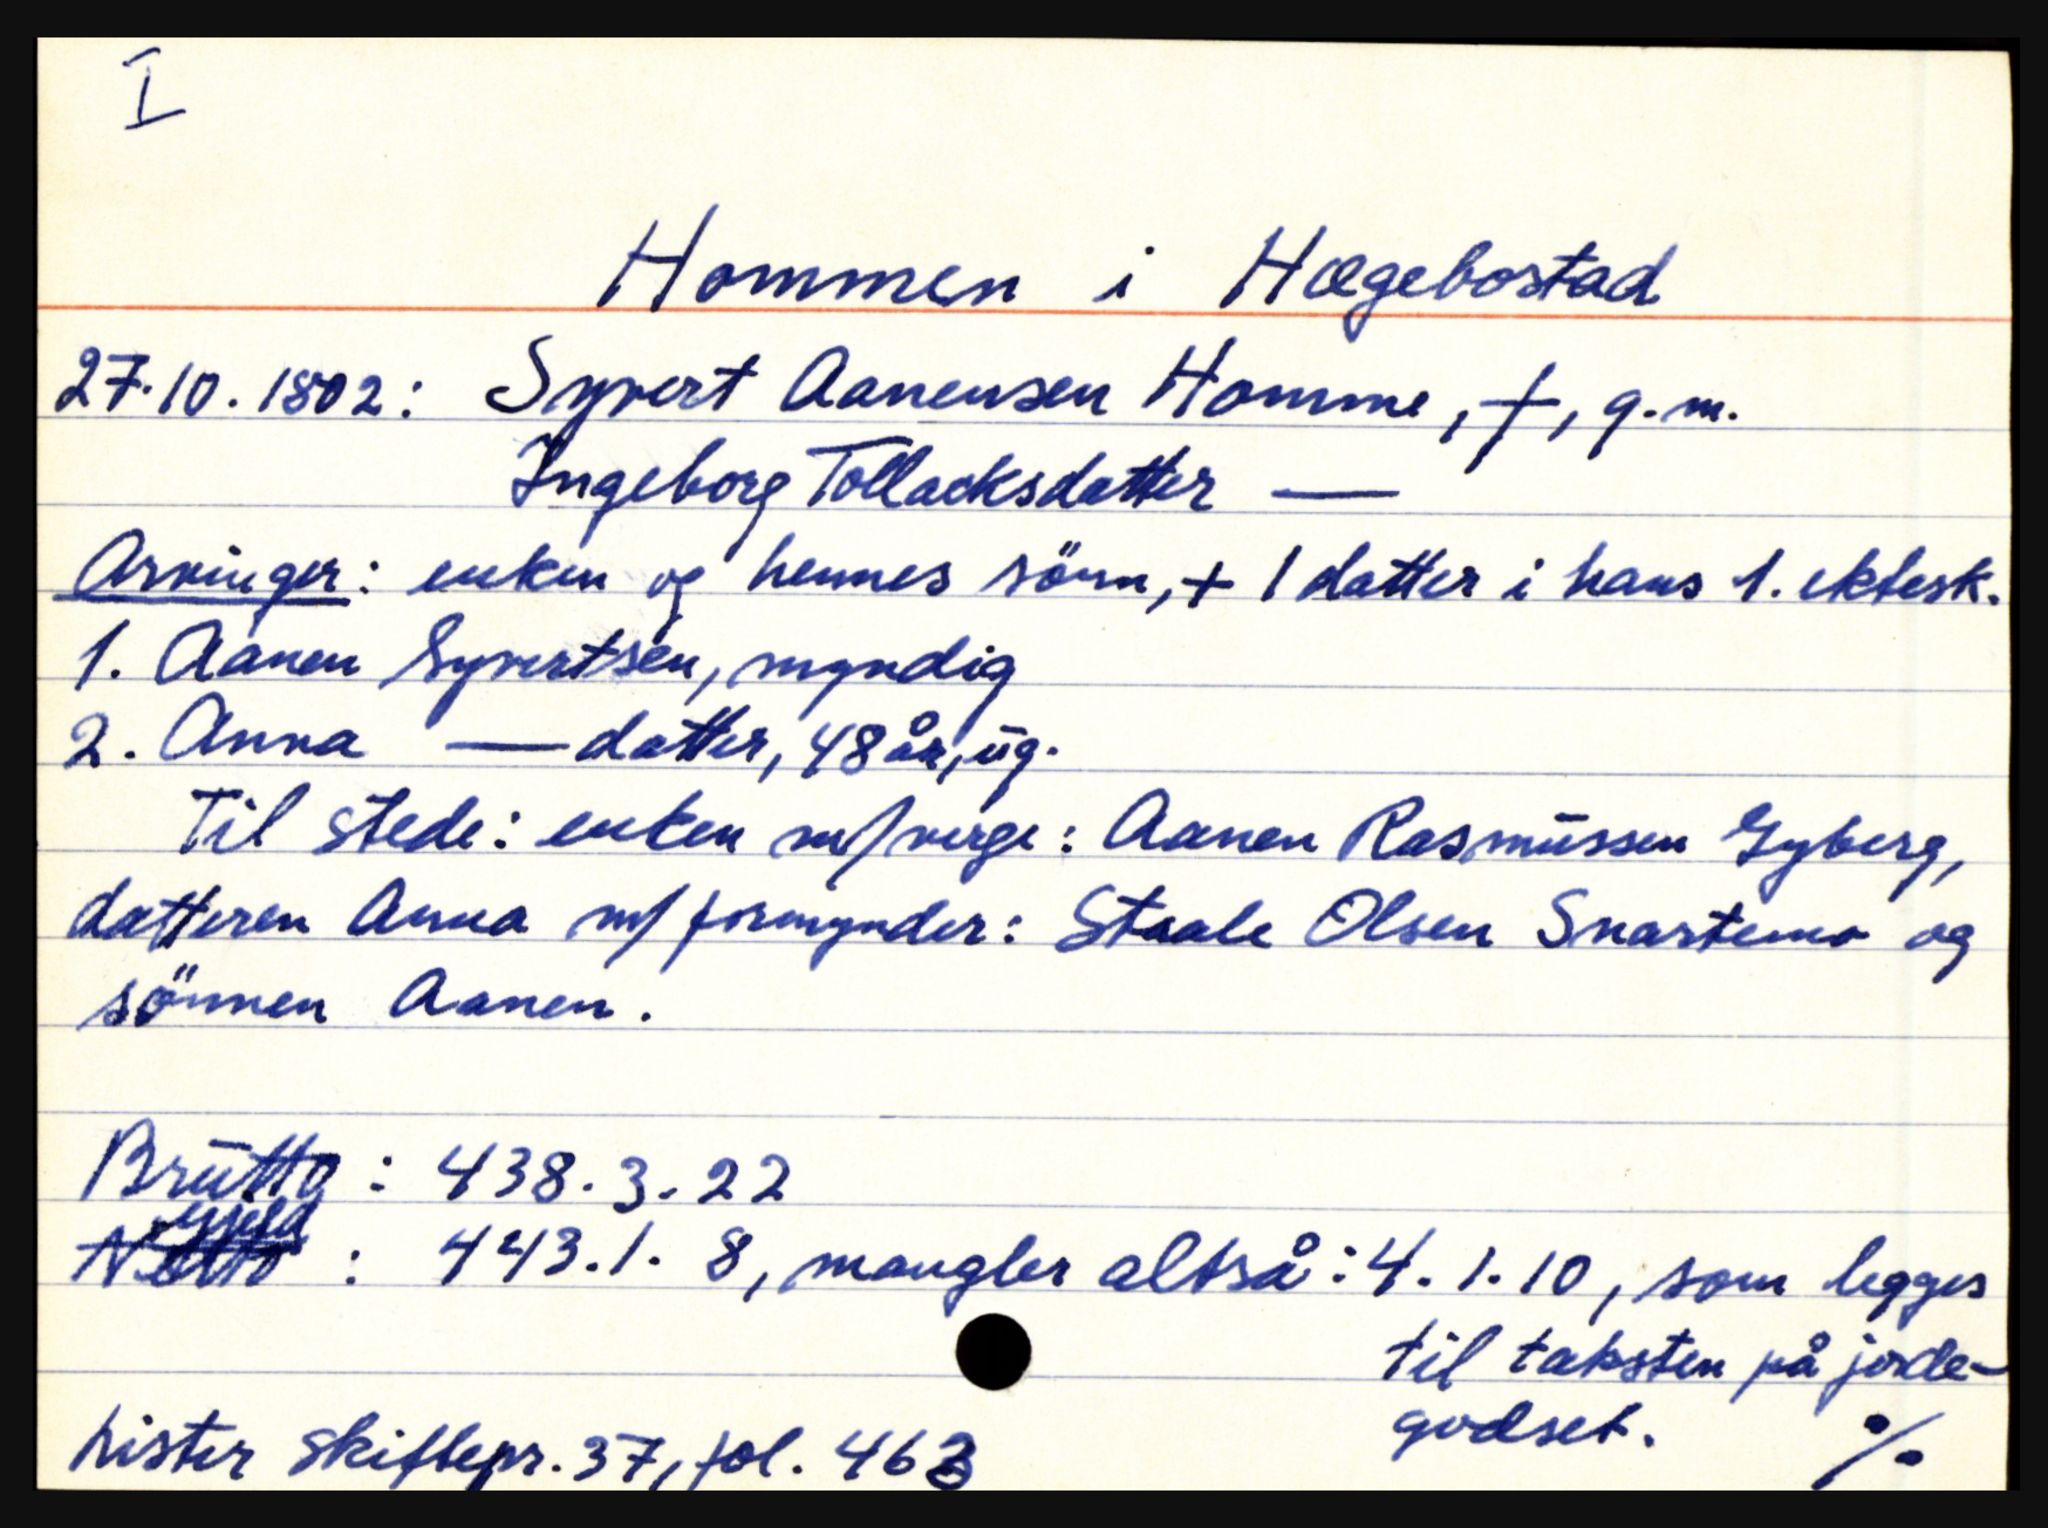 I
Hommen i Hægebostad
27.10.1802: Syvert Aanensen Homme, †, g.m.
Ingeborg Tollacksdatter —
Arvinger: enken og hennes sönn, + 1 datter i hans 1. ektesk.
1. Aanen Syvertsen, myndig
2. Anna — datter, 48 år, ug.
Til stede: enken m/verge: Aanen Rasmussen Gyberg,
datteren Anna m/formynder: Staale Olsen Snartemo og
sönnen Aanen.
Brutto: 438.3.22
Gjeld
Netto : 443.1. 8, mangler altså: 4.1.10, som legges
til taksten på jorde-
godset. ·/.
Lister skiftepr. 37, fol. 463